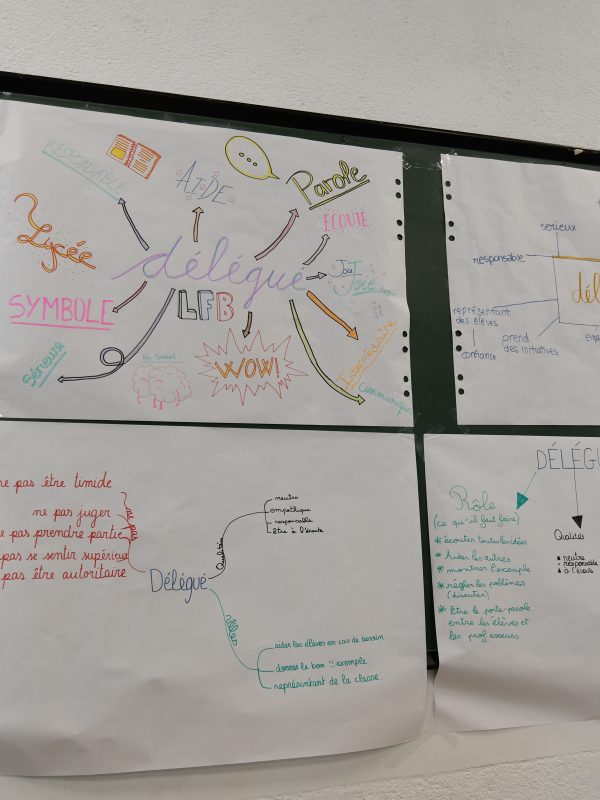 RESPONSABLE
AIDE
Parole
ECOUTE
Lycée
délégué
Joie
SYMBOLE
LFB
Intermédiaire
WOW!
communiquer
Sérieux
serieux
responsable
représentant
des élèves
prend
des initiatives
confiance
ne pas être timide
ne pas juger
pas prendre partie
pas se sentir supérieur
pas être autoritaire
ne pas
Délégué
Qualités
neutre
empathique
responsable
être à l'écoute
rôles
aider les élèves en cas de besoin.
donner le bon exemple.
représentant de la classe.
DÉLÉGU
Rôle
(ce qu'il faut faire)
* écouter toutes les idées
* Aider les autres
* montrer l'exemple
* régler les poblèmes
(discuter)
* Etre le porte-parole
entre les élèves et
les professeurs
Qualités
neutre
responsable
à l'écoute